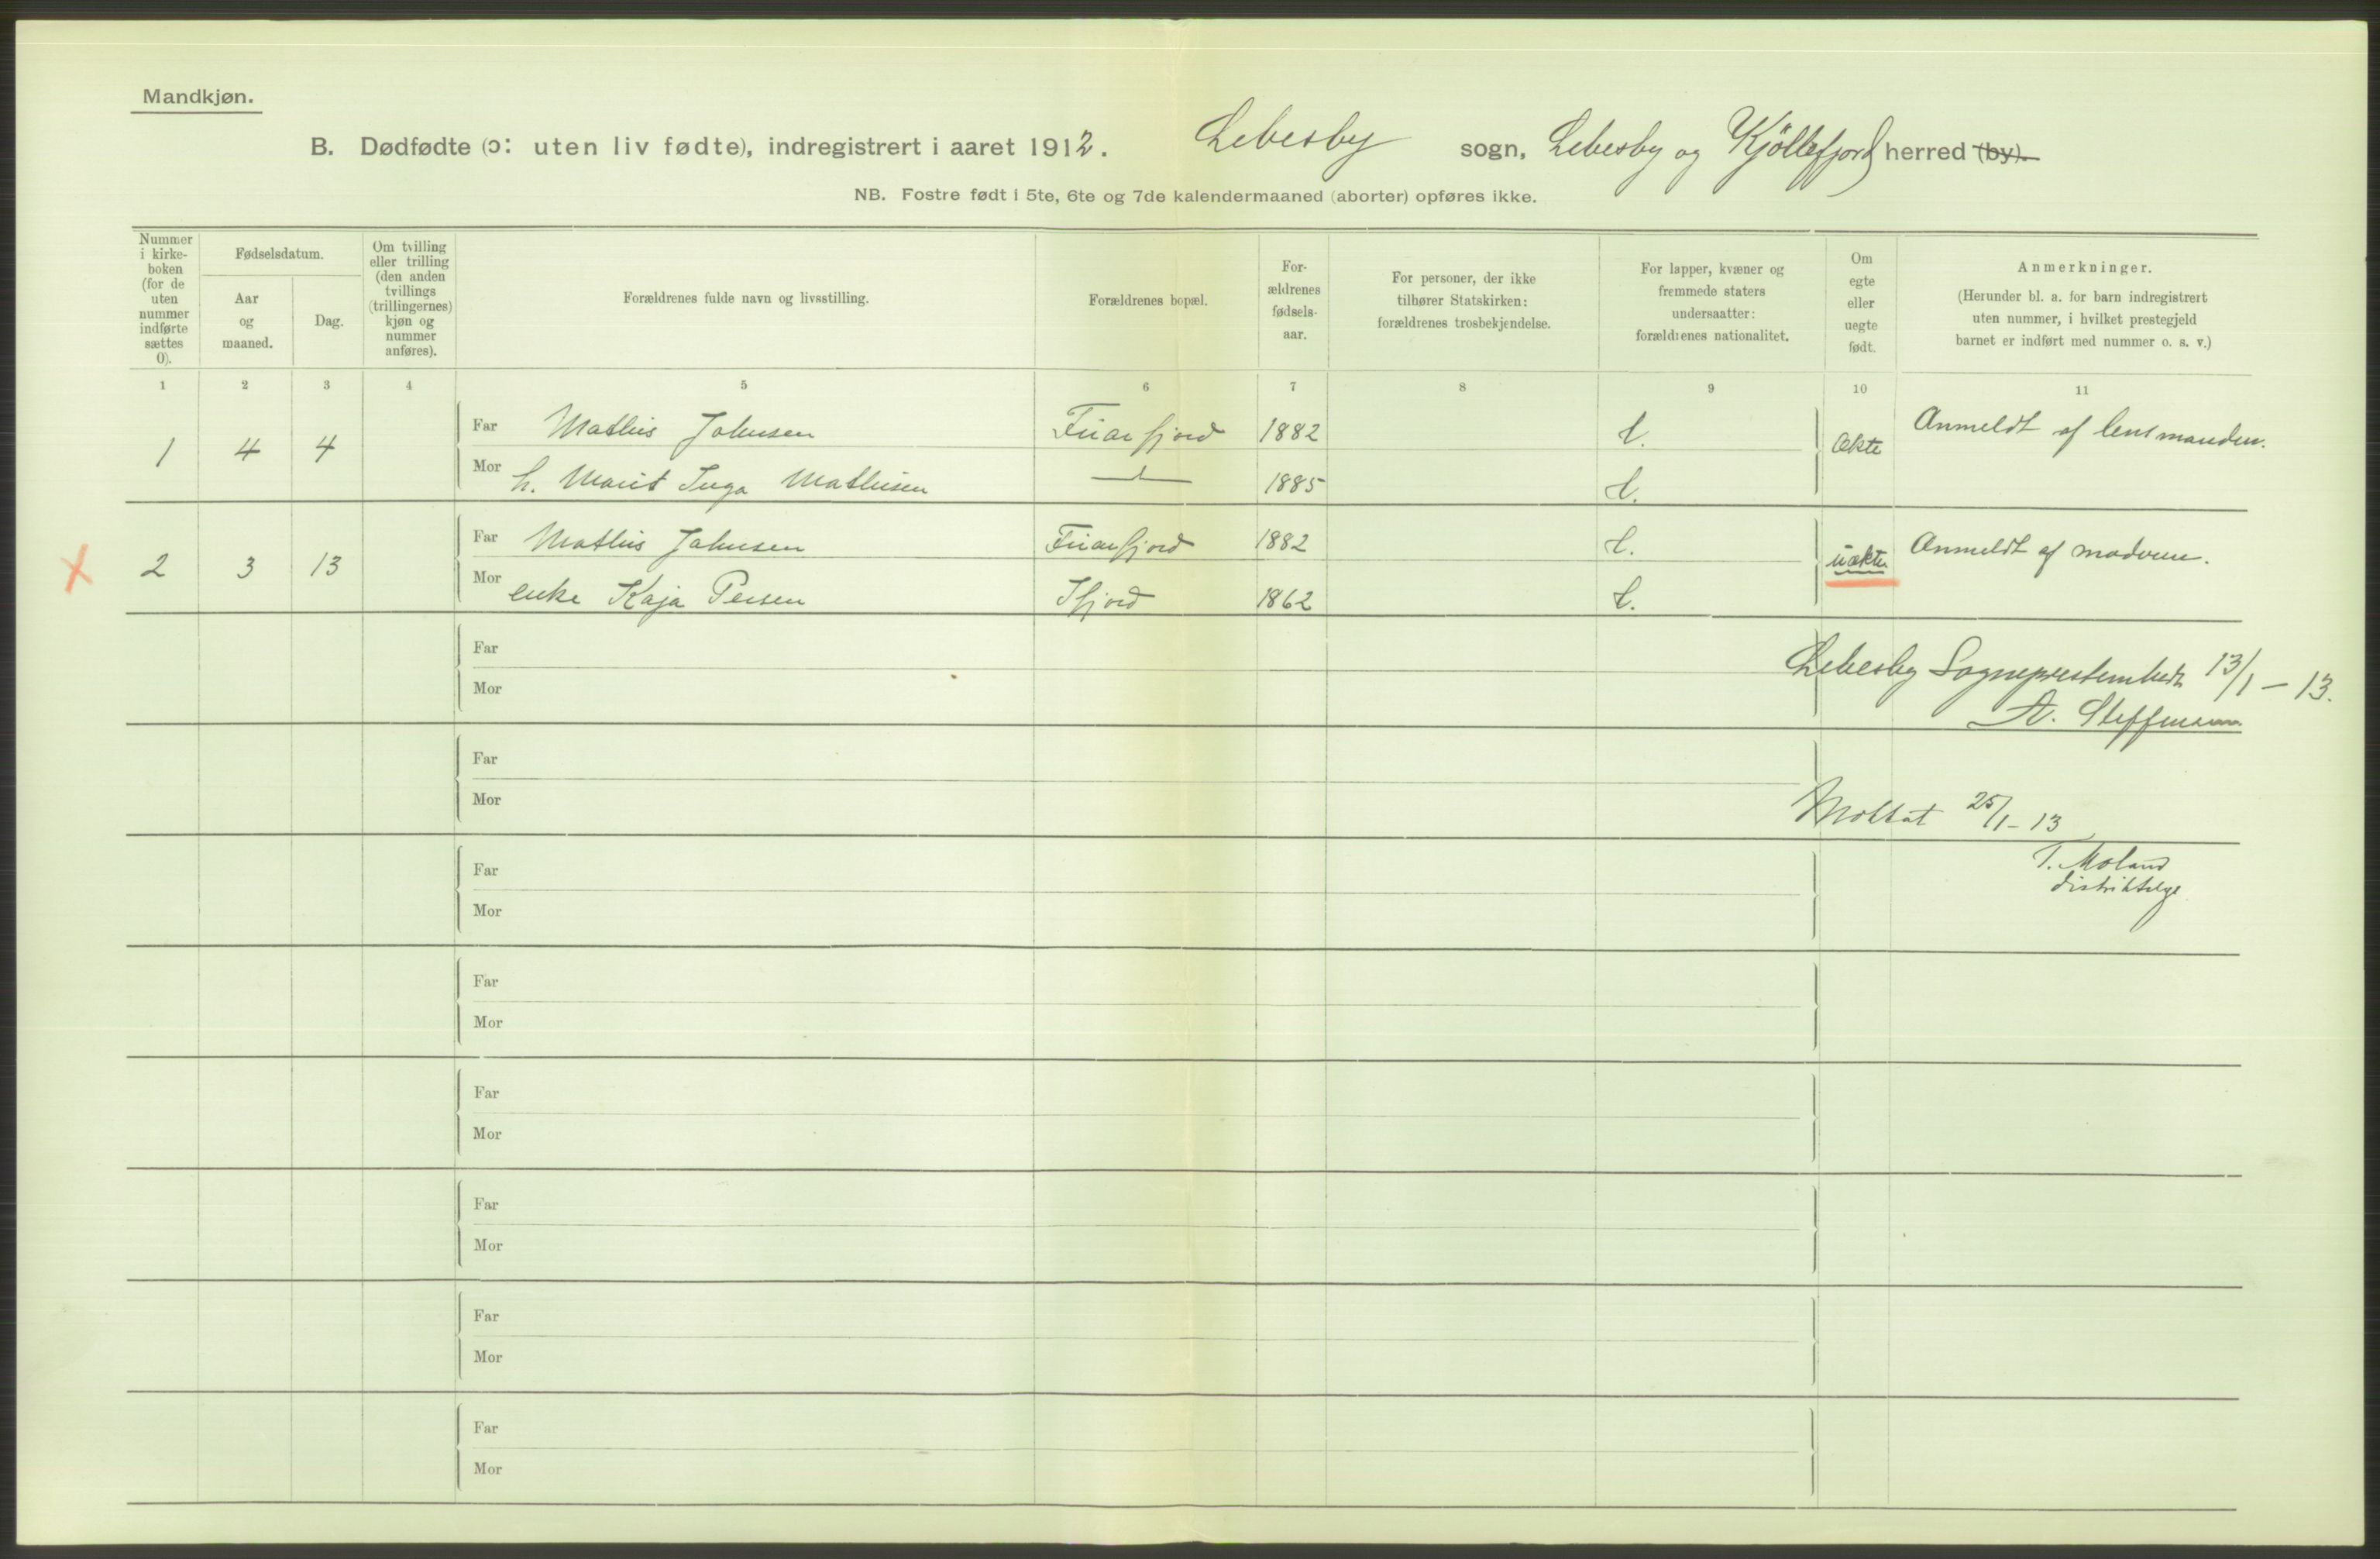 Mandkjøn.
B. Dødfødte (ɔ: uten liv fødte), indregistrert i aaret 1912. Lebesby sogn, Lebesby og Kjöllefjord herred (by).
NB. Fostre født i 5te, 6te og 7de kalendermaaned (aborter) opføres ikke.
Nummer
i kirke-
boken
(for de
uten
nummer
indførte
sættes
0).
Fødselsdatum.
Aar
og
maaned.
Dag.
Om tvilling
eller trilling
(den anden
tvillings
(trillingernes)
kjøn og
nummer
anføres).
Forældrenes fulde navn og livsstilling.
Forældrenes bopæl.
For-
ældrenes
fødsels-
aar.
For personer, der ikke
tilhører Statskirken:
forældrenes trosbekjendelse.
For lapper, kvæner og
fremmede staters
undersaatter:
forældrenes nationalitet.
Om
egte
eller
uegte
født.
Anmerkninger.
(Herunder bl. a. for barn indregistrert
uten nummer, i hvilket prestegjeld
barnet er indført med nummer o. s. v.)
1 2 3 4 5 6 7 8 9 10 11
1 4 4 Far Mathis Johnsen Friarfjord 1882 l. Ækte Anmeldt af lensmanden.
Mor h. Marit Inga Mathisen 1885 l.
2 3 13 Far Mathis Johnsen Friarfjord 1882 l. uækte Anmeldt af moderen.
Mor enke Kaja Persen Ifjord 1862 l.
Far
Mor
Lebesby Sogneprestembede 13/1 – 13.
A. Steffensen
Far
Mor
Mottat 25/1 – 13
T. Moland
distriktslæge
Far
Mor
Far
Mor
Far
Mor
Far
Mor
Far
Mor
Far
Mor